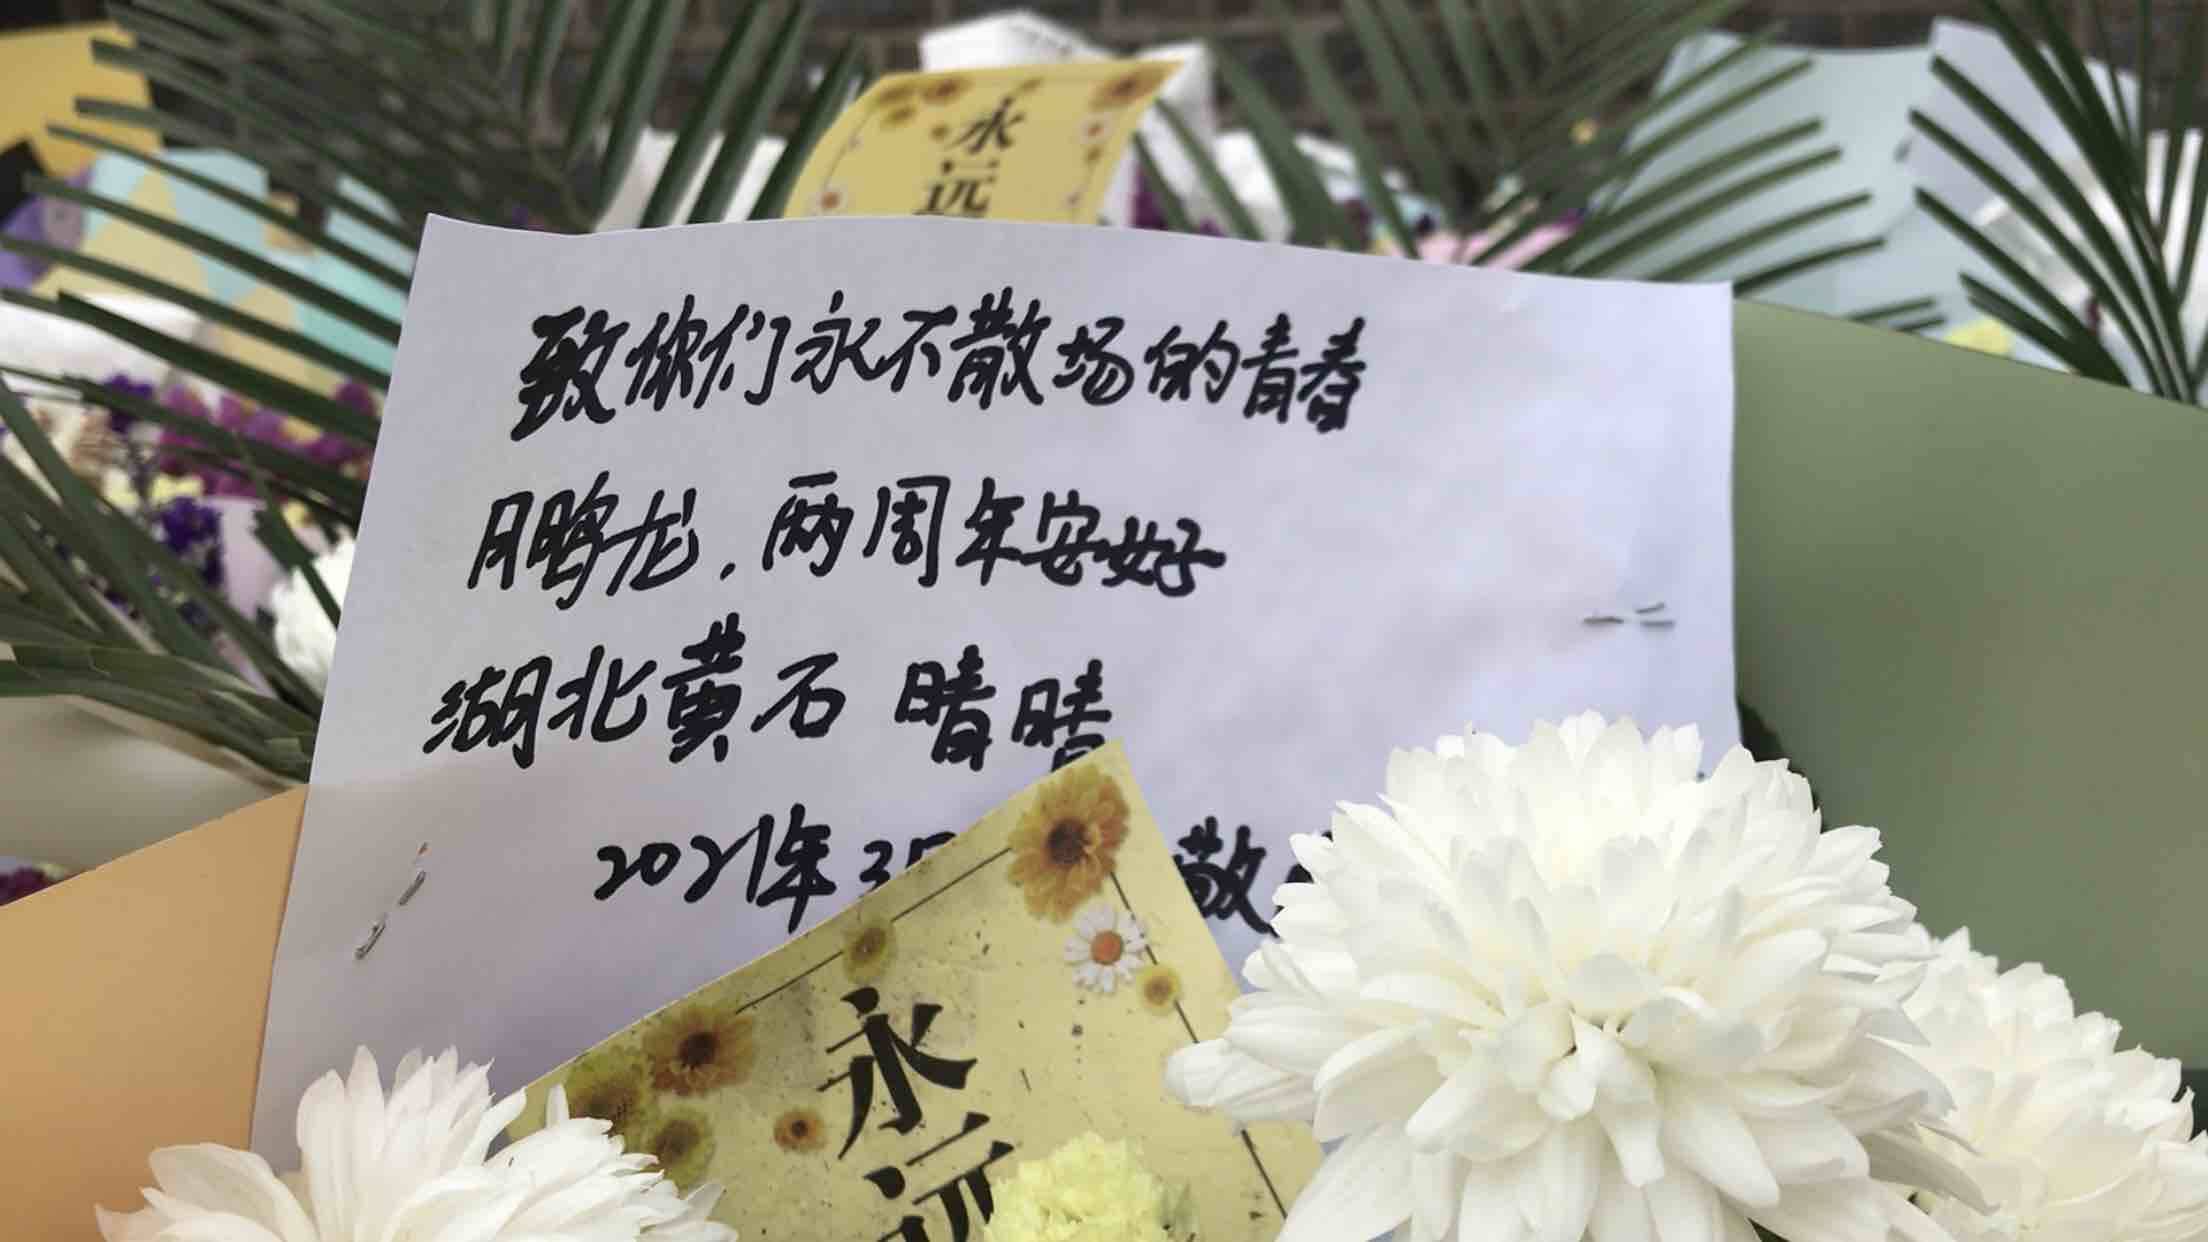 永远
致你们永不散场的青春
鹏龙.两周年安好
湖北黄石 晴晴
2021年3月 敬
永远